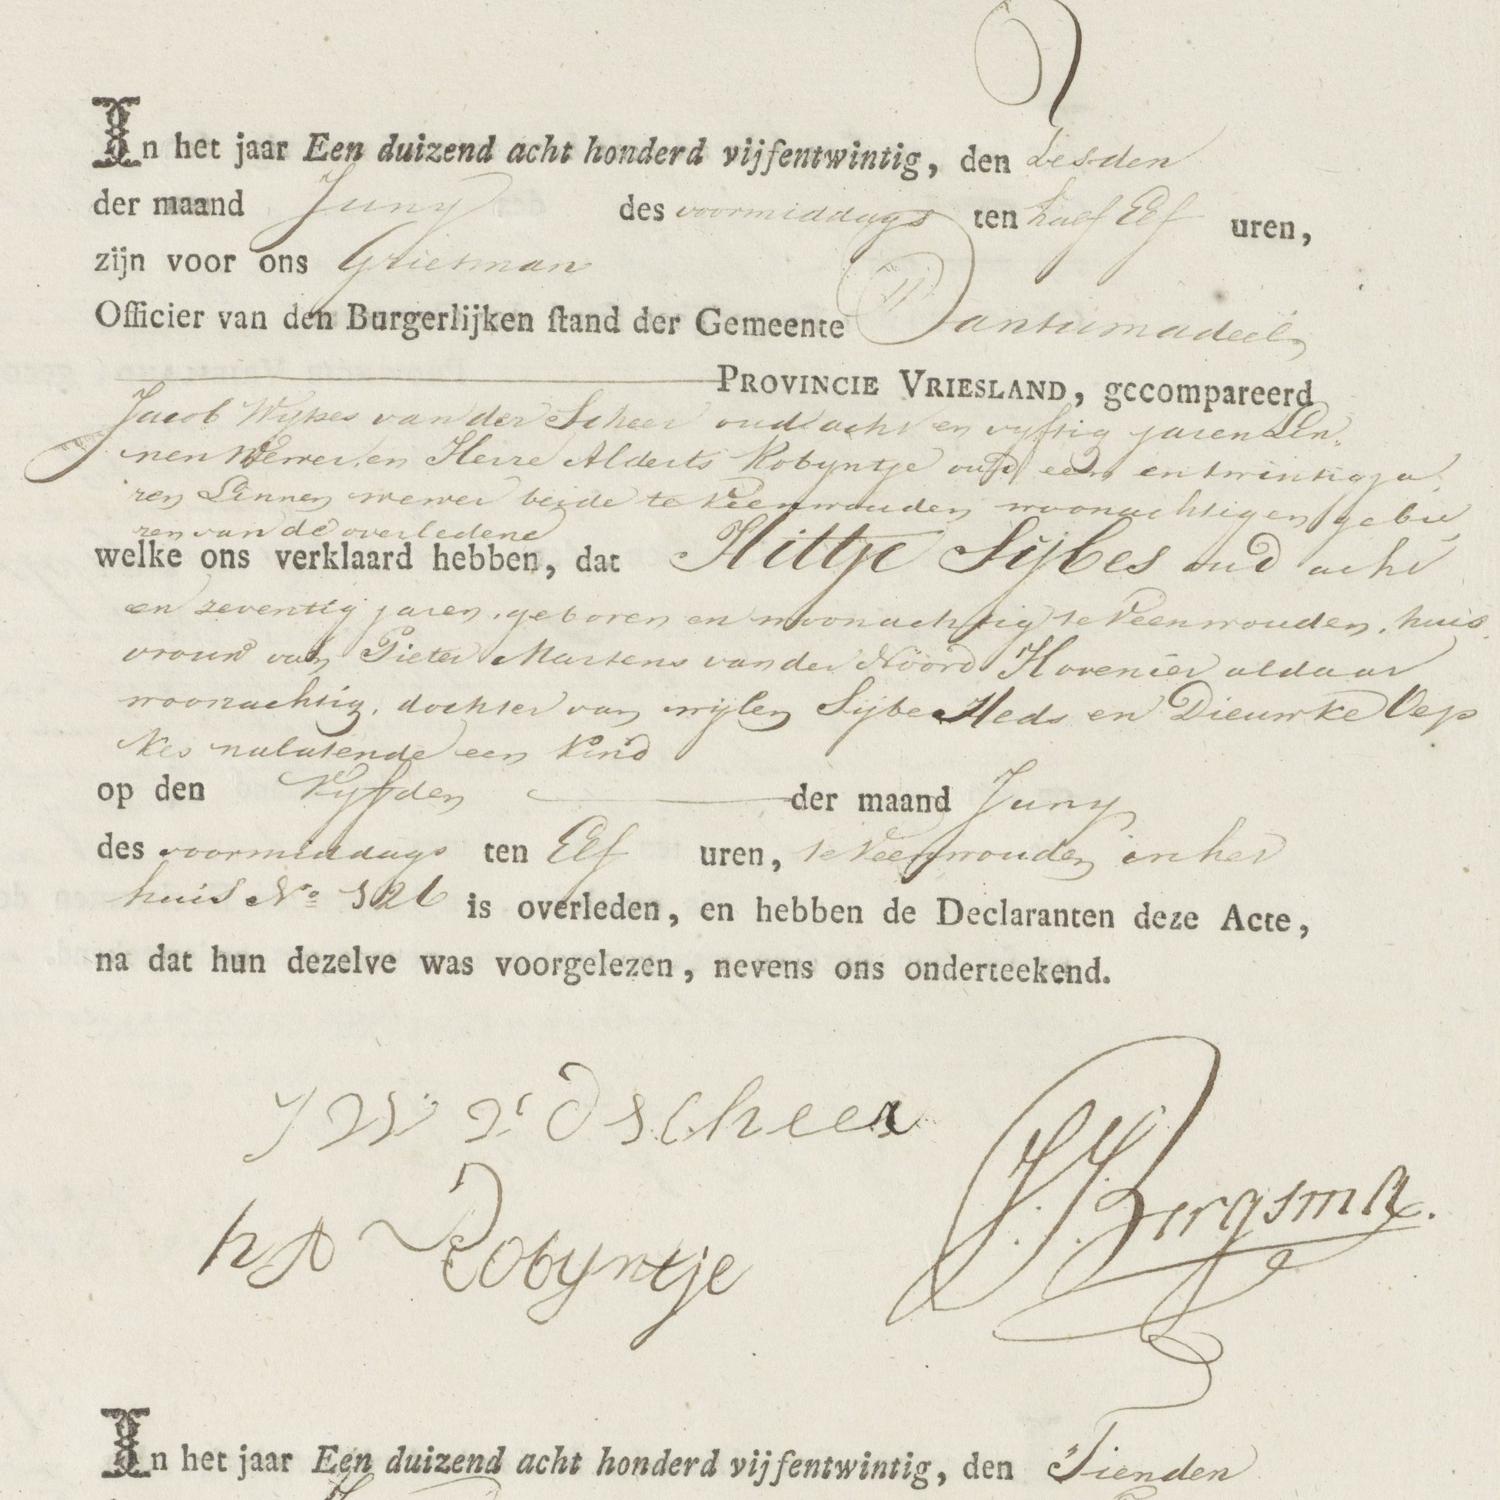 In het jaar Een duizend acht honderd vijfentwintig, den Zesden
der maand Juny des voormiddags ten half Elf uren,
zijn voor ons Grietman
Officier van den Burgerlijken stand der Gemeente Dantumadeel
PROVINCIE VRIESLAND, gecompareerd
Jacob Wykes van der Scheer oud acht en vyftig jaren Lin-
nen Wever, en Herre Alderts Robyntje oud een en twintig ja
ren Linnen wever beide te Veenwouden woonachtig en gebu
ren van de overledene
welke ons verklaard hebben, dat Hittje Sijbes oud acht
en zeventig jaren, geboren en woonachtig te Veenwouden, huis
vrouw van Pieter Martens van der Noord Hovenier aldaar
woonachtig, dochter van wijlen Sijbe Heds en Dieuwke Oep
kes nalatende een kind
op den Vyfden der maand Juny
des voormiddags ten Elf uren, te Veenwouden in het
huis No 126 is overleden, en hebben de Declaranten deze Acte,
na dat hun dezelve was voorgelezen, nevens ons onderteekend.
J W v d scheer
h A Robyntje
Bergsma.
In het jaar Een duizend acht honderd vijfentwintig, den Tienden